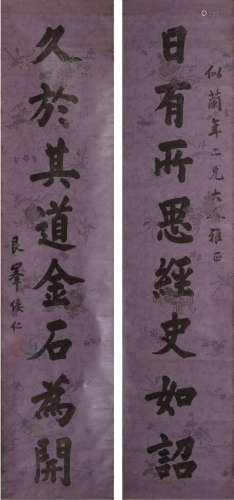 似蘭年二兄大人雅正
日有所思經史如詔
久於其道金石為開
艮峯倭仁